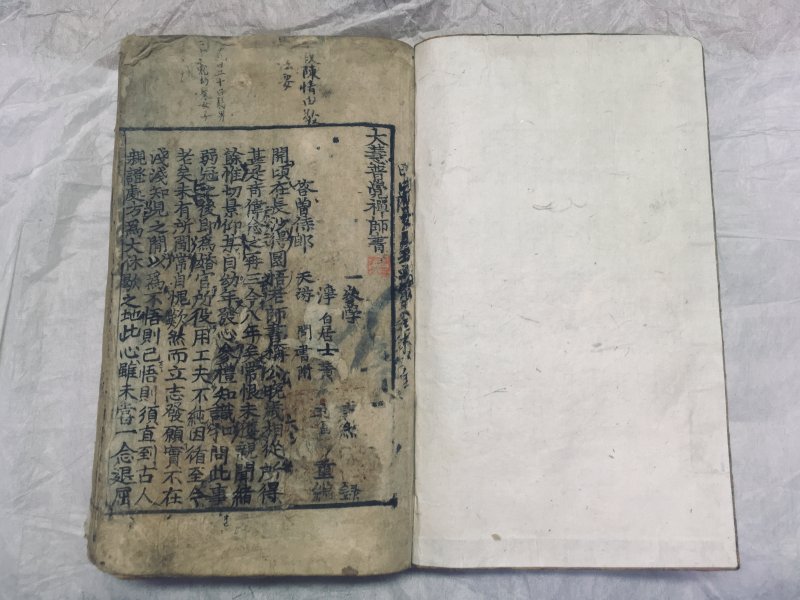 陳情由致
大慧普覺禪師書
參學 慧然 錄
淨 居士 黃 重編
答曾侍郎 天游 問書附
開頃在長沙得圜悟老師書稱公晚歲相從所得
甚是奇偉念之再三今八年矣常恨未獲親聞緒
餘惟切景仰某自幼年發心參禮知識扣問此事
弱冠之後即為婚宦所役用工夫不純因循至今
老矣未有所聞常自愧歎然而立志發願實不在
淺淺知見之間以為不悟則已悟則須直到古人
親證處方為大休歇之地此心雖未嘗一念退屈